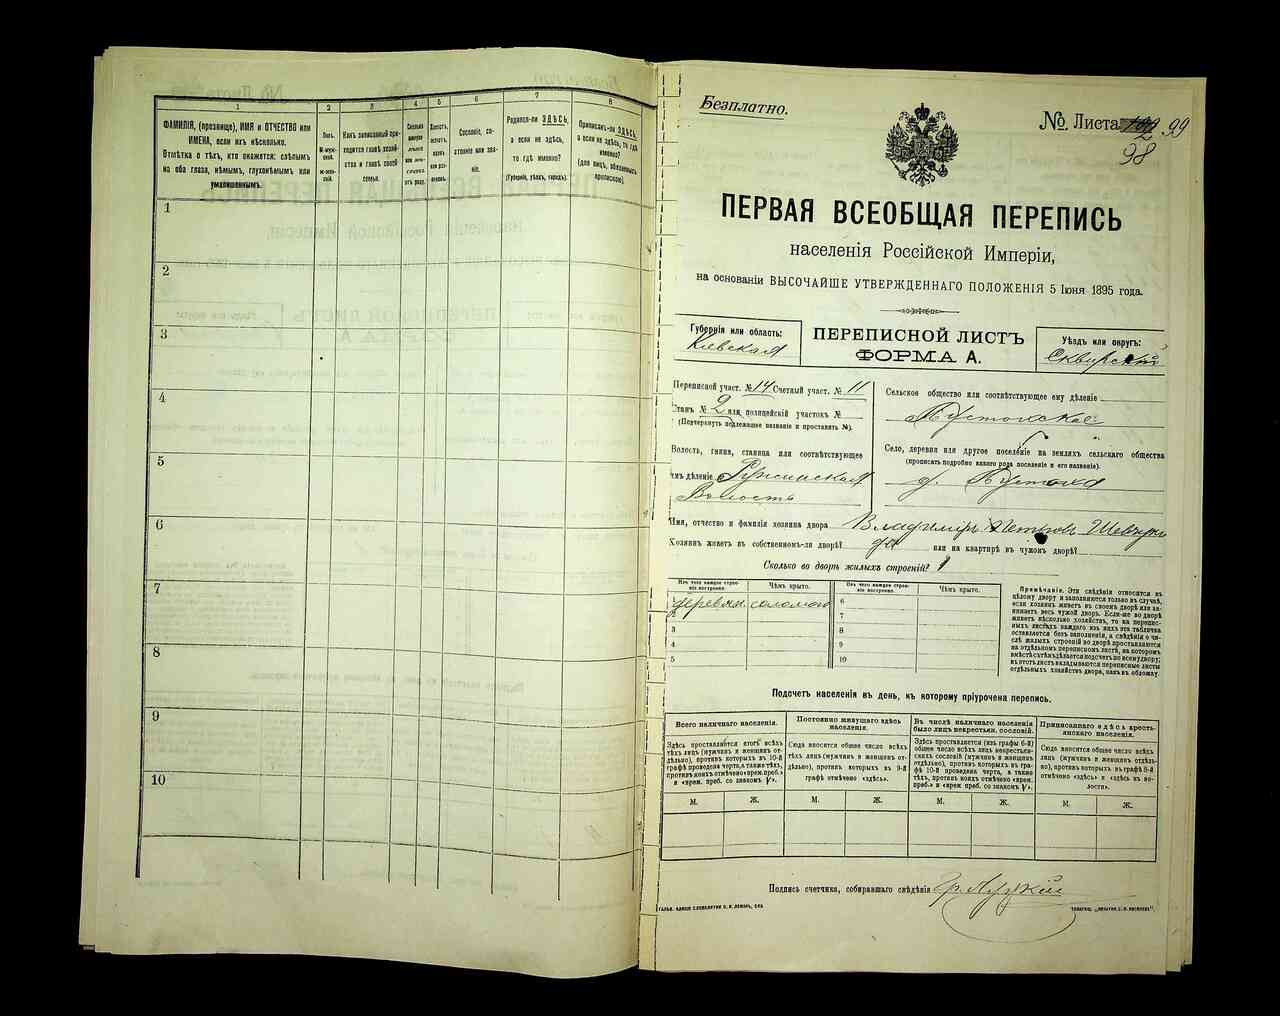 1
2
3
4
5
6
7
8
ФАМИЛІЯ, (прозвище), ИМЯ и ОТЧЕСТВО или
ИМЕНА, если ихъ нѣсколько.
Отмѣтка о тѣхъ, кто окажется: слѣпымъ
на оба глаза, нѣмымъ, глухонѣмымъ или
умалишеннымъ.
Полъ.
Какъ записанный при-
ходится главѣ хозяй-
ства и главѣ своей
семьи.
Сколько
Сословіе, со-
стояніе или зва-
ніе.
Родился-ли ЗДѢСЬ,
а если не здѣсь,
то гдѣ именно?
(Губернія, уѣздъ, городъ).
Приписанъ-ли ЗДѢСЬ,
а если не здѣсь, то гдѣ
именно?
(для лицъ, обязанныхъ
припискою).
1
2
3
4
5
6
7
8
9
10
Безплатно.
№ Листа 99
98
ПЕРВАЯ ВСЕОБЩАЯ ПЕРЕПИСЬ
населенія Россійской Имперіи,
на основаніи ВЫСОЧАЙШЕ УТВЕРЖДЕННАГО ПОЛОЖЕНІЯ 5 Іюня 1895 года.
Губернія или область:
Кіевская
ПЕРЕПИСНОЙ ЛИСТЪ
ФОРМА А.
Уѣздъ или округъ:
Сквирскій
Переписной участ. № 14 Счетный участ. № 11
Станъ № 2 или полицейскій участокъ №
(Подчеркнуть подлежащее названіе и проставить №).
Волость, гмина, станица или соотвѣтствующее
имъ дѣленіе Ружинская
Волость
Сельское общество или соотвѣтствующее ему дѣленіе
Пустохское
Село, деревня или другое поселеніе на земляхъ сельскаго общества
(прописать подробно какого рода поселеніе и его названіе).
д. Пустоха
Имя, отчество и фамилія хозяина двора Владиміръ Петровъ
Хозяинъ живетъ въ собственномъ-ли дворѣ? да или на квартирѣ въ чужомъ дворѣ?
Сколько во дворѣ жилыхъ строеній? 1
Изъ чего каждое строе-
ніе построено.
Чѣмъ крыто.
Изъ чего каждое строе-
ніе построено.
Чѣмъ крыто.
1 деревян. соломою
2
3
4
5
6
7
8
9
10
Примѣчаніе. Эти свѣдѣнія относятся къ
цѣлому двору и заполняются только въ случаѣ,
если хозяинъ живетъ въ своемъ дворѣ или за-
нимаетъ весь чужой дворъ. Если-же во дворѣ
живетъ нѣсколько хозяйствъ, то на перепис-
ныхъ листахъ каждаго изъ нихъ эта табличка
оставляется безъ заполненія, а свѣдѣнія о чи-
слѣ жилыхъ строеній во дворѣ проставляются
на отдѣльномъ переписномъ листѣ, на которомъ
вмѣстѣ съ тѣмъ дѣлается подсчетъ по всему двору;
въ этотъ листъ вкладываются переписные листы
отдѣльныхъ хозяйствъ двора, какъ въ обложку.
Подсчетъ населенія въ день, къ которому пріурочена перепись.
Всего наличнаго населенія.
Постоянно живущаго здѣсь
населенія.
Въ числѣ наличнаго населенія
было лицъ некрестьян. сословій.
Приписаннаго здѣсь кресть-
янскаго населенія.
Здѣсь проставляется итогъ всѣхъ
тѣхъ лицъ (мужчинъ и женщинъ от-
дѣльно), противъ которыхъ въ 10-й
графѣ проведена черта, а также тѣхъ,
противъ коихъ отмѣчено «врем. преб.»
и «врем. преб. со знакомъ V».
Сюда вносится общее число всѣхъ
тѣхъ лицъ (мужчинъ и женщинъ от-
дѣльно), противъ которыхъ въ 9-й
графѣ отмѣчено «здѣсь».
Здѣсь проставляется (изъ графы 6-й)
общее число всѣхъ лицъ некрестьян-
скихъ сословій (мужчинъ и женщинъ
отдѣльно), противъ которыхъ въ гра-
фѣ 10-й проведена черта, а также
тѣхъ, противъ коихъ отмѣчено «врем.
преб.» и «врем. преб. со знакомъ V».
Сюда вносится общее число всѣхъ
лицъ (мужчинъ и женщинъ отдѣль-
но), противъ которыхъ въ графѣ 8-й
отмѣчено «здѣсь» и «здѣсь въ во-
лости».
М.
Ж.
М.
Ж.
М.
Ж.
М.
Ж.
Подпись счетчика, собиравшаго свѣдѣнія Гр. Луцкій